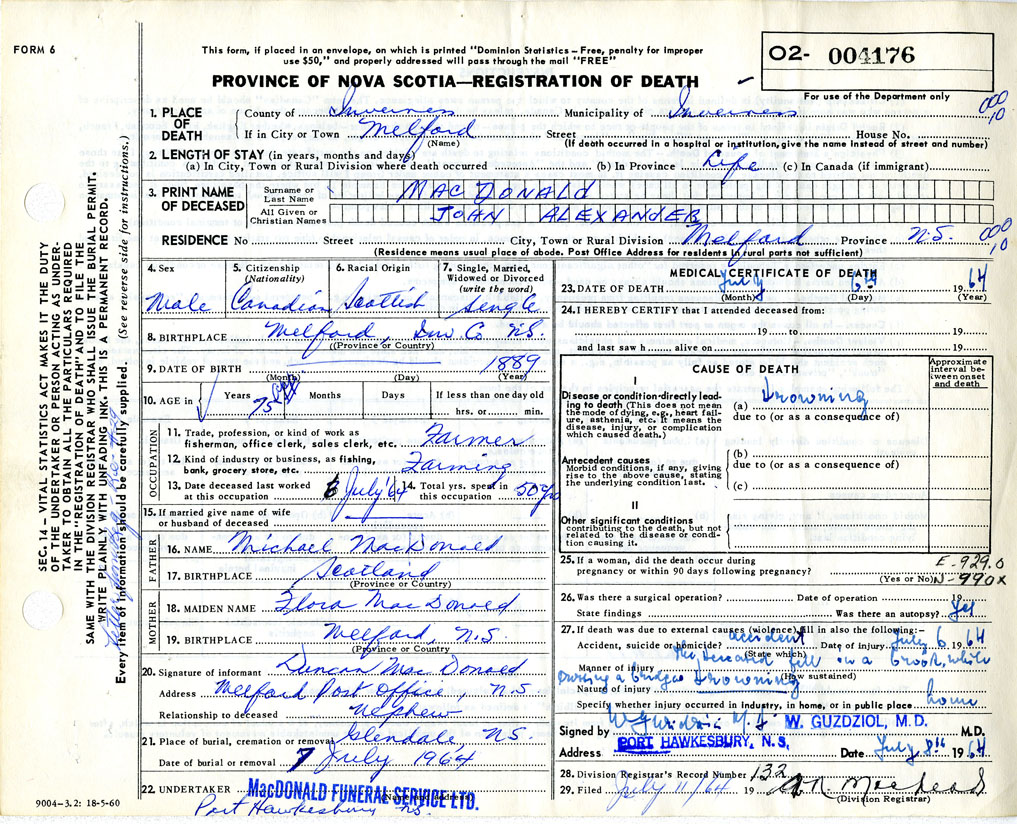 FORM 6
This form, if placed in an envelope, on which is printed "Dominion Statistics – Free, penalty for improper
use $50," and properly addressed will pass through the mail "FREE"
O2- 004176
PROVINCE OF NOVA SCOTIA—REGISTRATION OF DEATH
For use of the Department only
1. PLACE OF DEATH
County of Inverness Municipality of Inverness
000
10
If in City or Town Melford Street House No.
(Name) (If death occurred in a hospital or institution, give the name instead of street and number)
2. LENGTH OF STAY (in years, months and days)
(a) In City, Town or Rural Division where death occurred (b) In Province Life (c) In Canada (if immigrant)
3. PRINT NAME OF DECEASED
Surname or Last Name MAC DONALD
All Given or Christian Names JOHN ALEXANDER
RESIDENCE No Street City, Town or Rural Division Melford Province N.S.
000
10
(Residence means usual place of abode. Post Office Address for residents in rural parts not sufficient)
4. Sex
Male
5. Citizenship
(Nationality)
Canadian
6. Racial Origin
Scottish
7. Single, Married,
Widowed or Divorced
(write the word)
Single
8. BIRTHPLACE Melford, Inv Co N.S.
(Province or Country)
9. DATE OF BIRTH 1889
(Month) (Day) (Year)
10. AGE in Years 75 Months Days If less than one day old
hrs. or min.
OCCUPATION
11. Trade, profession, or kind of work as
fisherman, office clerk, sales clerk, etc. Farmer
12. Kind of industry or business, as fishing,
bank, grocery store, etc. Farming
13. Date deceased last worked
at this occupation 6 July '64
14. Total yrs. spent in
this occupation 50 yrs
15. If married give name of wife
or husband of deceased
FATHER
16. NAME Michael MacDonald
17. BIRTHPLACE Scotland
(Province or Country)
MOTHER
18. MAIDEN NAME Flora MacDonald
19. BIRTHPLACE Melford, N.S.
(Province or Country)
20. Signature of informant Duncan MacDonald
Address Melford Post Office, N.S
Relationship to deceased Nephew
21. Place of burial, cremation or removal Glendale N.S.
Date of burial or removal 7 July 1964
22. UNDERTAKER MacDONALD FUNERAL SERVICE LTD.
Port Hawkesbury N.S.
9004-3.2: 18-5-60
MEDICAL CERTIFICATE OF DEATH
23. DATE OF DEATH July 6th 1964
(Month) (Day) (Year)
24. I HEREBY CERTIFY that I attended deceased from:
19 to 19
and last saw h alive on 19
CAUSE OF DEATH
Approximate interval between onset and death
I
Disease or condition directly leading
to death (This does not mean
the mode of dying, e.g., heart failure,
asthenia, etc. It means the
disease, injury, or complication
which caused death.)
(a) Drowning
due to (or as a consequence of)
Antecedent causes
Morbid conditions, if any, giving
rise to the above cause, stating
the underlying condition last.
(b)
due to (or as a consequence of)
(c)
II
Other significant conditions
contributing to the death, but not
related to the disease or condition
causing it.
25. If a woman, did the death occur during
pregnancy or within 90 days following pregnancy?
(Yes or No)
E-929.0
N-990X
26. Was there a surgical operation? Date of operation 19
State findings Was there an autopsy? Yes
27. If death was due to external causes (violence) fill in also the following:–
Accident, suicide or homicide? accident Date of injury July 6 1964
(State which)
Manner of injury the deceased fell in a brook while
(How sustained)
Nature of injury Drowning
Specify whether injury occurred in industry, in home, or in public place home
Signed by W. Guzdziol M.D. W. GUZDZIOL, M.D. M.D.
Address PORT HAWKESBURY, N.S. Date July 8th 1964
28. Division Registrar's Record Number 132
29. Filed July 11/64 19
(Division Registrar)
SEC. 14 – VITAL STATISTICS ACT MAKES IT THE DUTY
OF THE UNDERTAKER OR PERSON ACTING AS UNDERTAKER
TO OBTAIN ALL THE PARTICULARS REQUIRED
IN THE "REGISTRATION OF DEATH" AND TO FILE THE
SAME WITH THE DIVISION REGISTRAR WHO SHALL ISSUE THE BURIAL PERMIT.
WRITE PLAINLY WITH UNFADING INK. THIS IS A PERMANENT RECORD.
Every item of information should be carefully supplied. (See reverse side for instructions.)